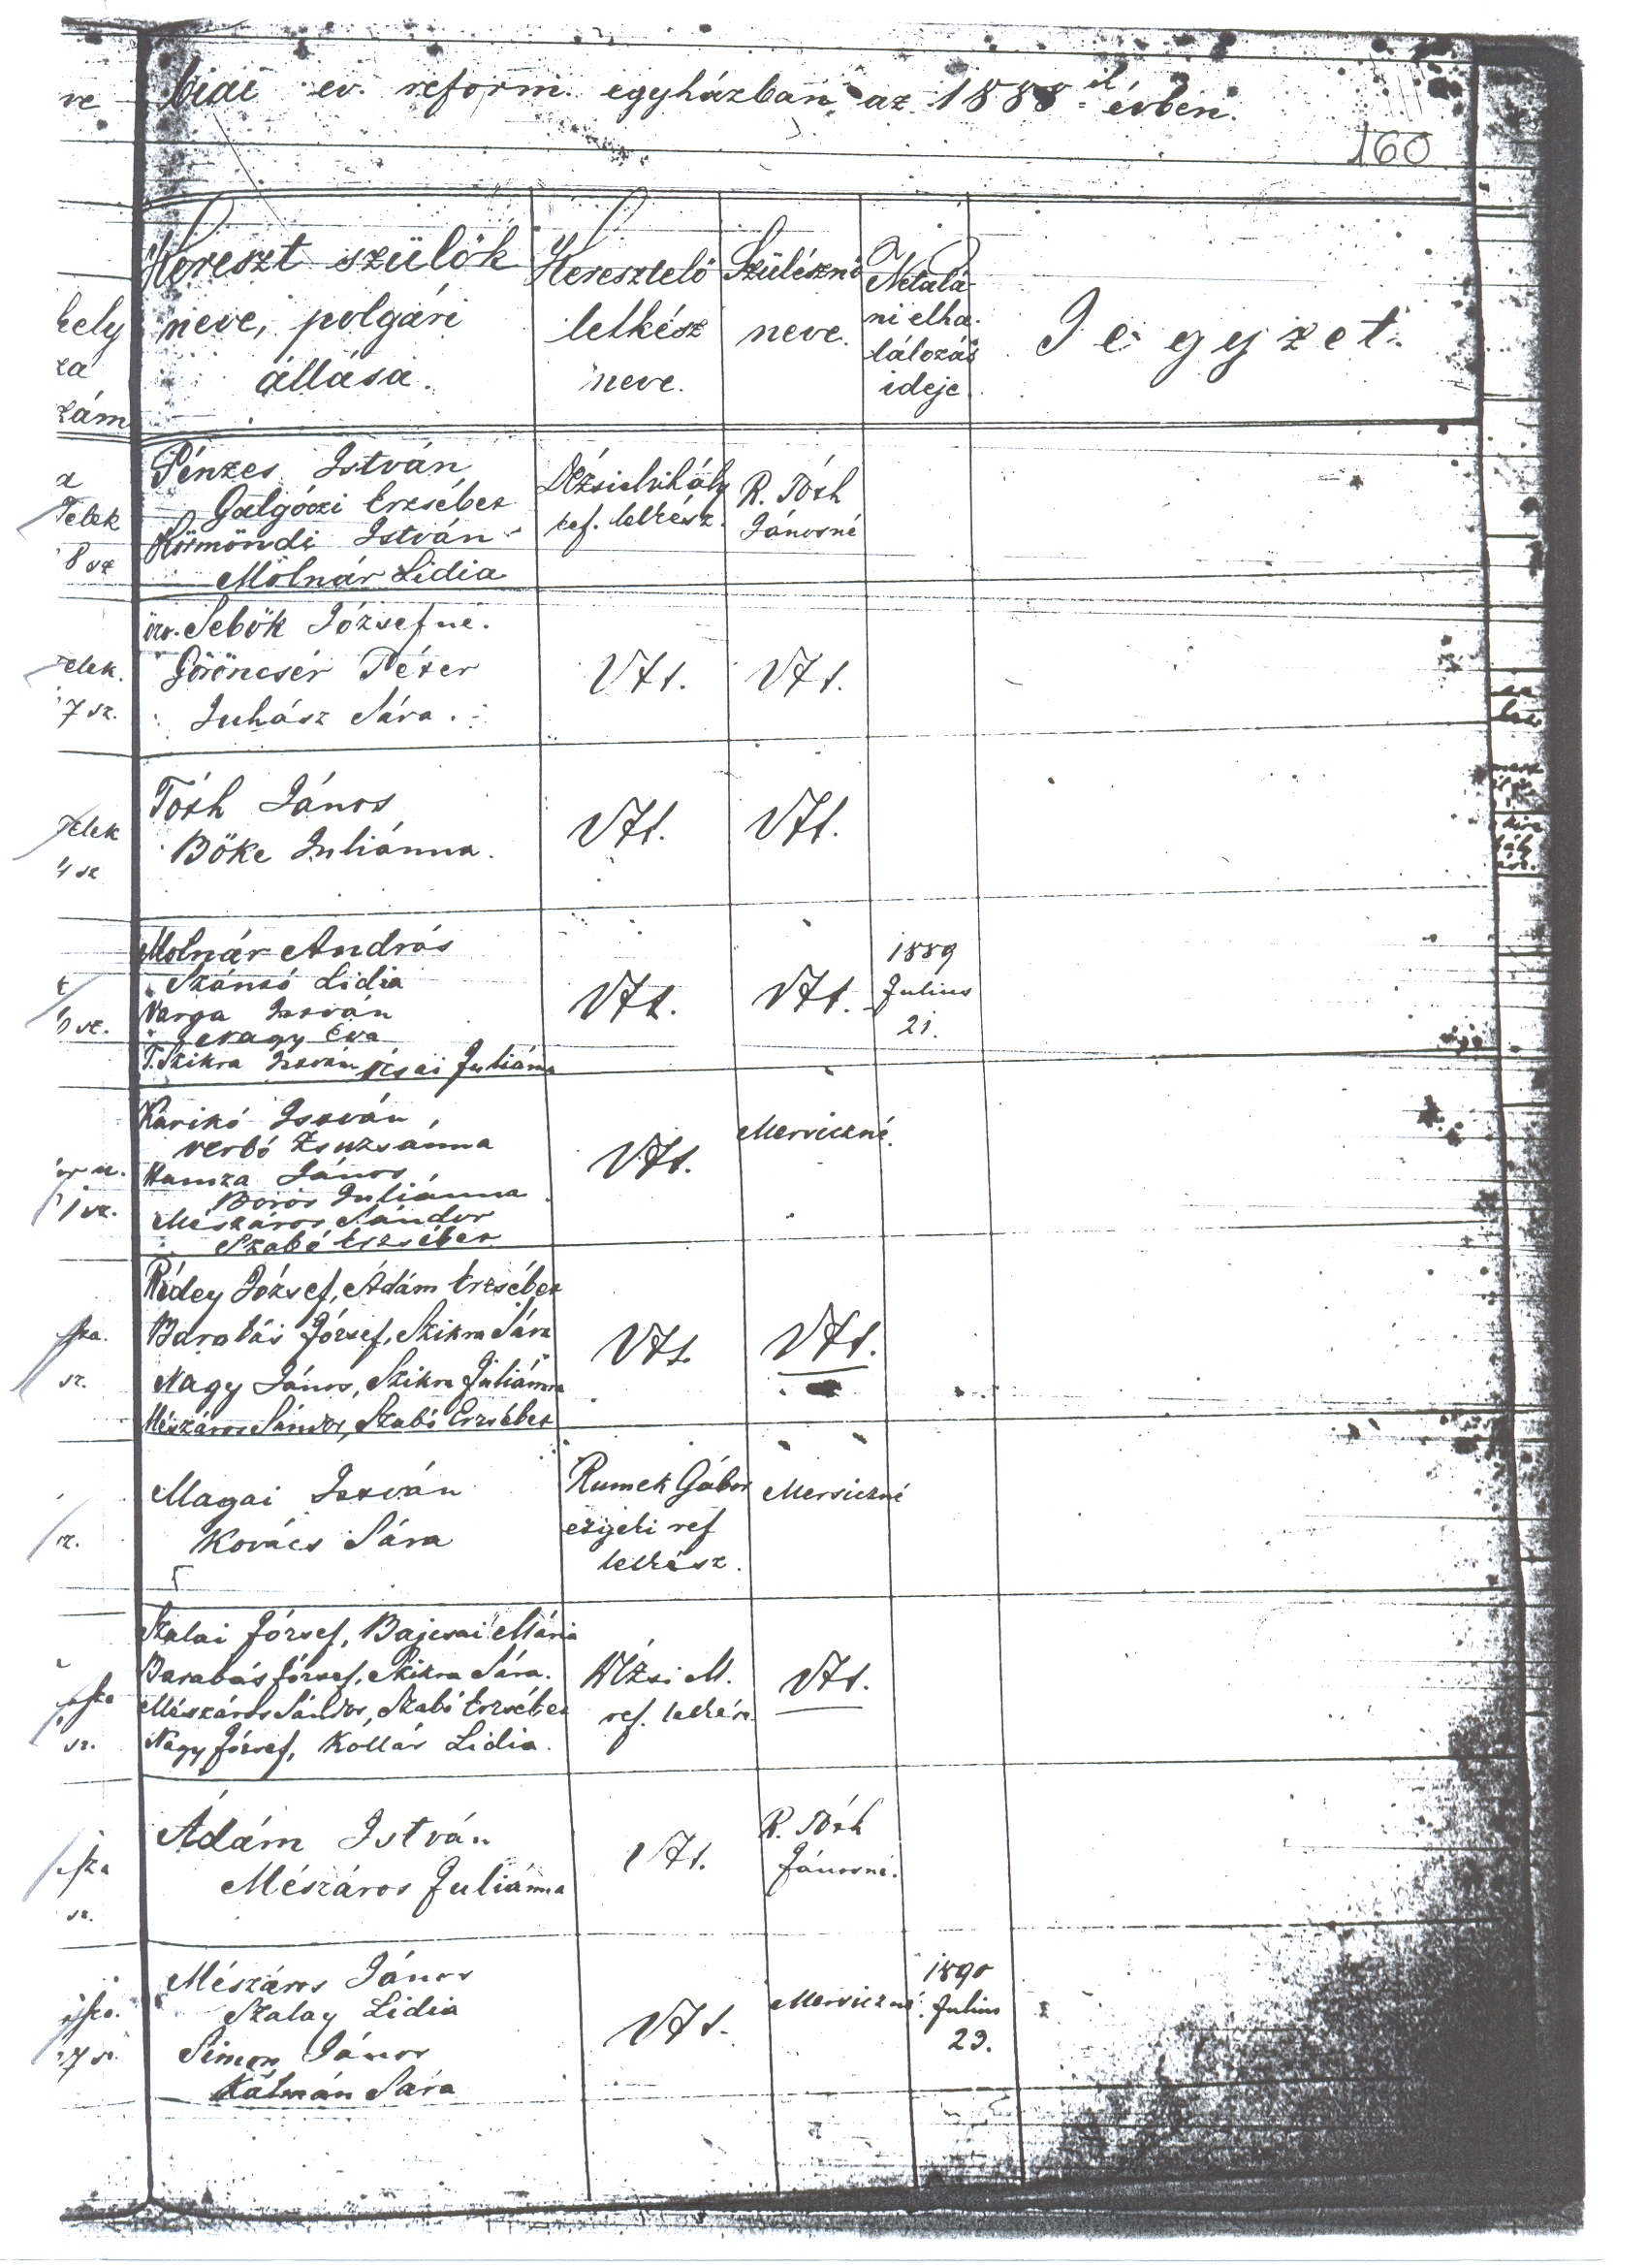 ev. reform. egyházban az 1888 ik évben.
160
Kereszt szülők
neve, polgári
állása.
Keresztelő
lelkész
neve.
Szülésznő
neve.
Netalá-
ni elha-
lálozás
ideje
Jegyzet.
hely
zám
Pénzes István
Galgóczi Erzsébet
Körmöndi István
Molnár Lidia
Dézsi Mihály
ref. lelkész.
R. Tóth
Jánosné
Telek
8 sz
özv. Sebők Józsefné.
Göröncsér Péter
Juhász Sára.
elek.
7 sz.
Tóth János
Bőke Juliánna.
elek
4 sz
Molnár András
Szántó Lidia
Varga István
Nagy Éva
T. Szikra István Ócsai Juliána
1889
Julius
21.
Karikó István
Verbó Zsuzsánna
Hamza János
Boros Juliánna
Mészáros Sándor
Szabó Erzsébet
1 sz.
Rédey József, Ádám Erzsébet
Barabás József, Szikra Sára
Nagy János, Szikra Juliánna
Mészáros Sándor, Szabó Erzsébet
sz.
Magai István
Kovács Sára
Rumek Gábor
ref
lelkész.
Szalai József, Bajcsai Mária
Barabás József, Szikra Sára.
Mészáros Sándor, Szabó Erzsébet
Nagy József, Kollár Lidia.
Dézsi M.
ref. lelkész
sz.
Ádám István
Mészáros Juliánna
R. Tóth
Jánosné.
sz.
Mészáros János
Szalay Lidia
Simon János
Kálmán Sára
1890
Julius
23.